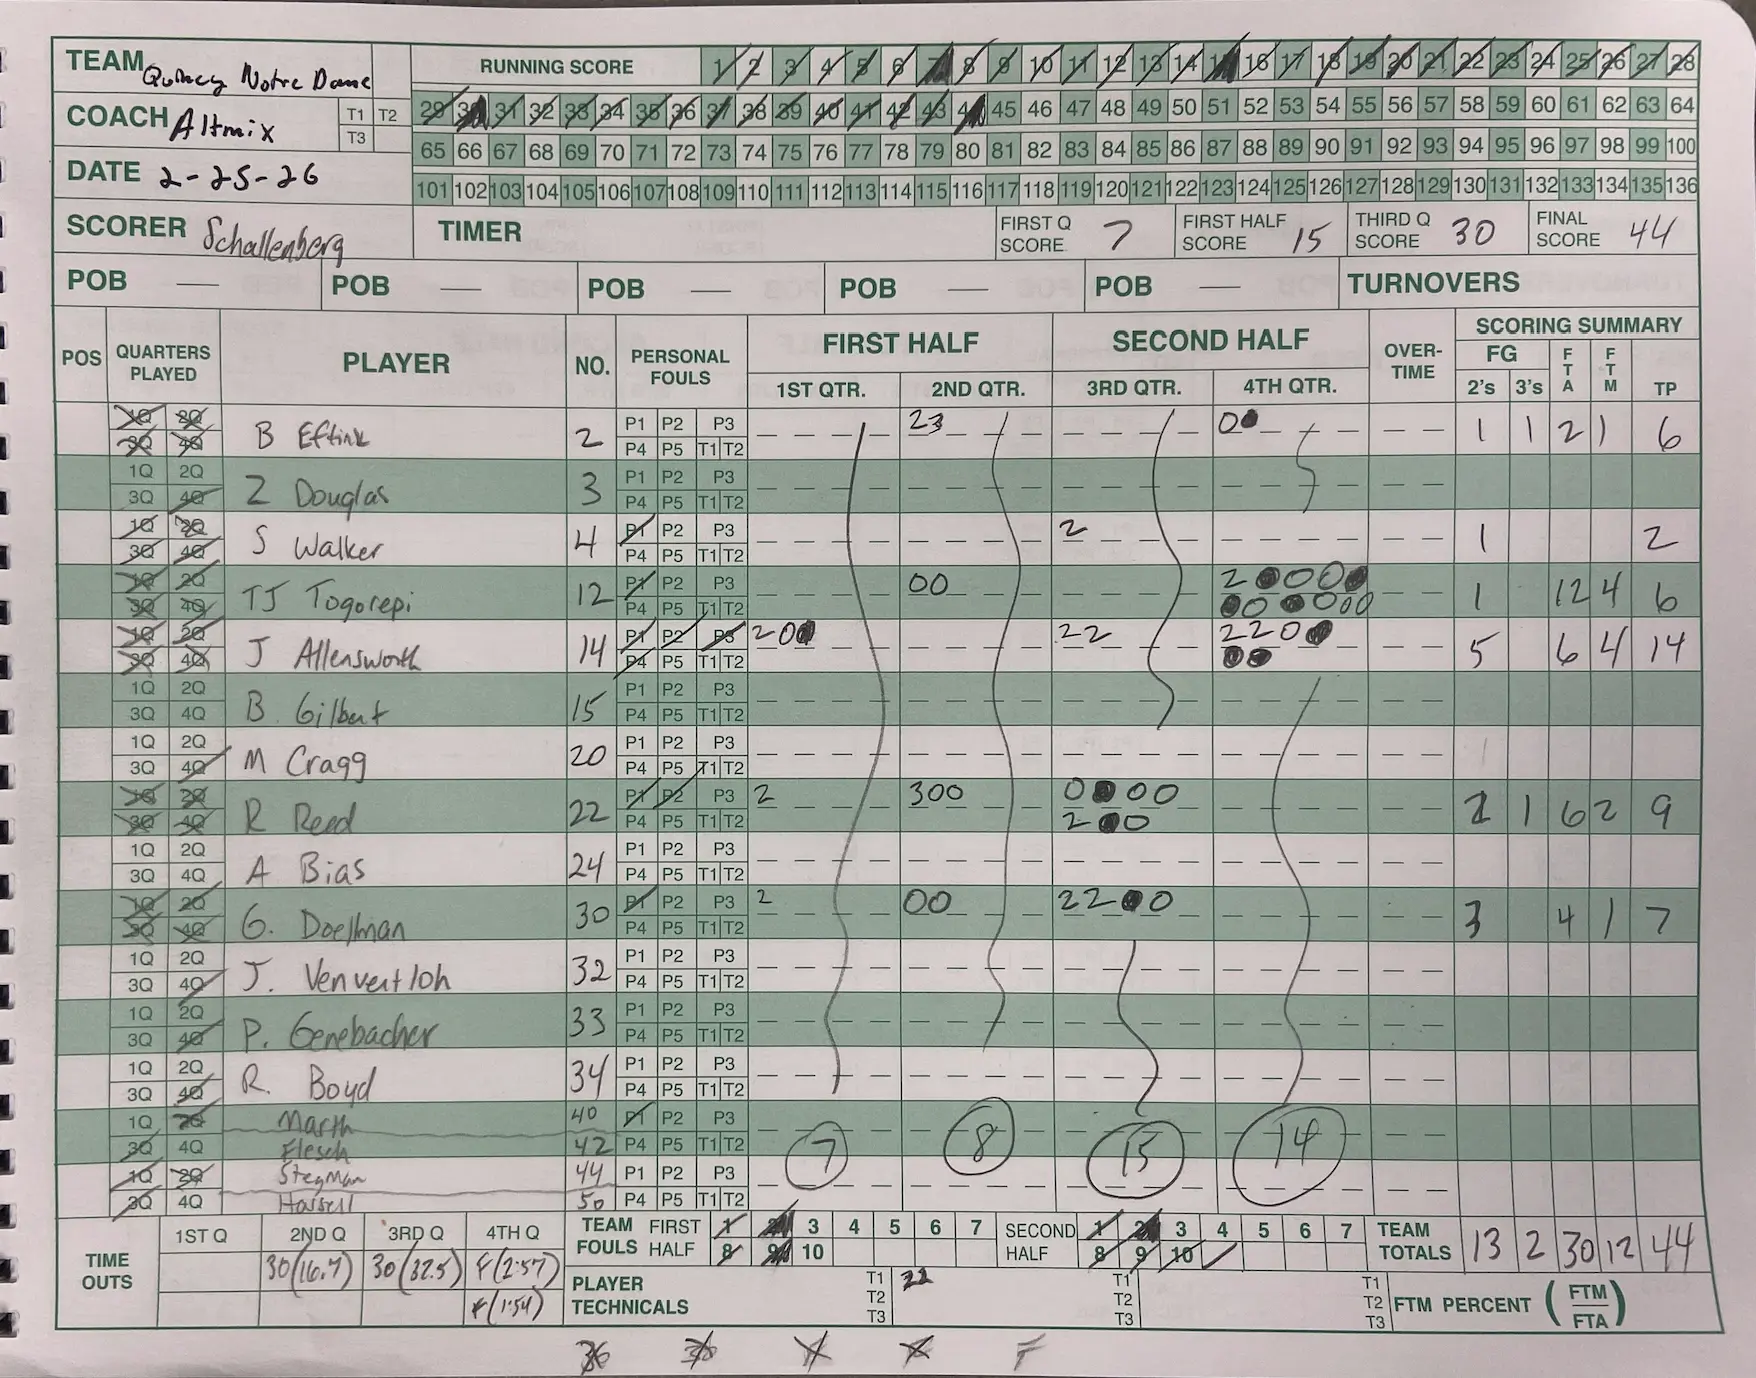 TEAM Quincy Notre Dame
RUNNING SCORE 1 2 3 4 5 6 7 8 9 10 11 12 13 14 15 16 17 18 19 20 21 22 23 24 25 26 27 28
COACH Altmix T1 T2 T3
29 30 31 32 33 34 35 36 37 38 39 40 41 42 43 44 45 46 47 48 49 50 51 52 53 54 55 56 57 58 59 60 61 62 63 64
65 66 67 68 69 70 71 72 73 74 75 76 77 78 79 80 81 82 83 84 85 86 87 88 89 90 91 92 93 94 95 96 97 98 99 100
DATE 2-25-26
101 102 103 104 105 106 107 108 109 110 111 112 113 114 115 116 117 118 119 120 121 122 123 124 125 126 127 128 129 130 131 132 133 134 135 136
SCORER Schallenberg TIMER FIRST Q SCORE 7 FIRST HALF SCORE 15 THIRD Q SCORE 30 FINAL SCORE 44
POB — POB — POB — POB — POB — TURNOVERS
POS QUARTERS PLAYED PLAYER NO. PERSONAL FOULS FIRST HALF SECOND HALF OVER-TIME SCORING SUMMARY
1ST QTR. 2ND QTR. 3RD QTR. 4TH QTR. FG 2's 3's FTA FTM TP
1Q 2Q 3Q 4Q B Eftink 2 P1 P2 P3 P4 P5 T1 T2 23 00 1 1 2 1 6
1Q 2Q 3Q 4Q Z Douglas 3 P1 P2 P3 P4 P5 T1 T2
1Q 2Q 3Q 4Q S Walker 4 P1 P2 P3 P4 P5 T1 T2 2 1 2
1Q 2Q 3Q 4Q TJ Togorepi 12 P1 P2 P3 P4 P5 T1 T2 00 20000 000000 1 12 4 6
1Q 2Q 3Q 4Q J Allensworth 14 P1 P2 P3 P4 P5 T1 T2 200 22 2200 00 5 6 4 14
1Q 2Q 3Q 4Q B Gilbert 15 P1 P2 P3 P4 P5 T1 T2
1Q 2Q 3Q 4Q M Cragg 20 P1 P2 P3 P4 P5 T1 T2
1Q 2Q 3Q 4Q R Reed 22 P1 P2 P3 P4 P5 T1 T2 2 300 0000 200 2 1 6 2 9
1Q 2Q 3Q 4Q A Bias 24 P1 P2 P3 P4 P5 T1 T2
1Q 2Q 3Q 4Q G. Doellman 30 P1 P2 P3 P4 P5 T1 T2 2 00 2200 3 4 1 7
1Q 2Q 3Q 4Q J. Venvertloh 32 P1 P2 P3 P4 P5 T1 T2
1Q 2Q 3Q 4Q P. Genebacher 33 P1 P2 P3 P4 P5 T1 T2
1Q 2Q 3Q 4Q R. Boyd 34 P1 P2 P3 P4 P5 T1 T2
1Q 2Q Marth 40 P1 P2 P3
3Q 4Q Flesch 42 P4 P5 T1 T2 7 8 15 14
1Q 2Q Stegman 44 P1 P2 P3
3Q 4Q 50 P4 P5 T1 T2
TIME OUTS 1ST Q 2ND Q 3RD Q 4TH Q
30(16.7) 30(32.5) F(2:57)
F(1:54)
TEAM FOULS FIRST HALF 1 2 3 4 5 6 7 8 9 10 SECOND HALF 1 2 3 4 5 6 7 8 9 10 TEAM TOTALS 13 2 30 12 44
PLAYER TECHNICALS T1 22 T2 T3 T1 T2 T3 T1 T2 T3 FTM PERCENT (FTM/FTA)
F